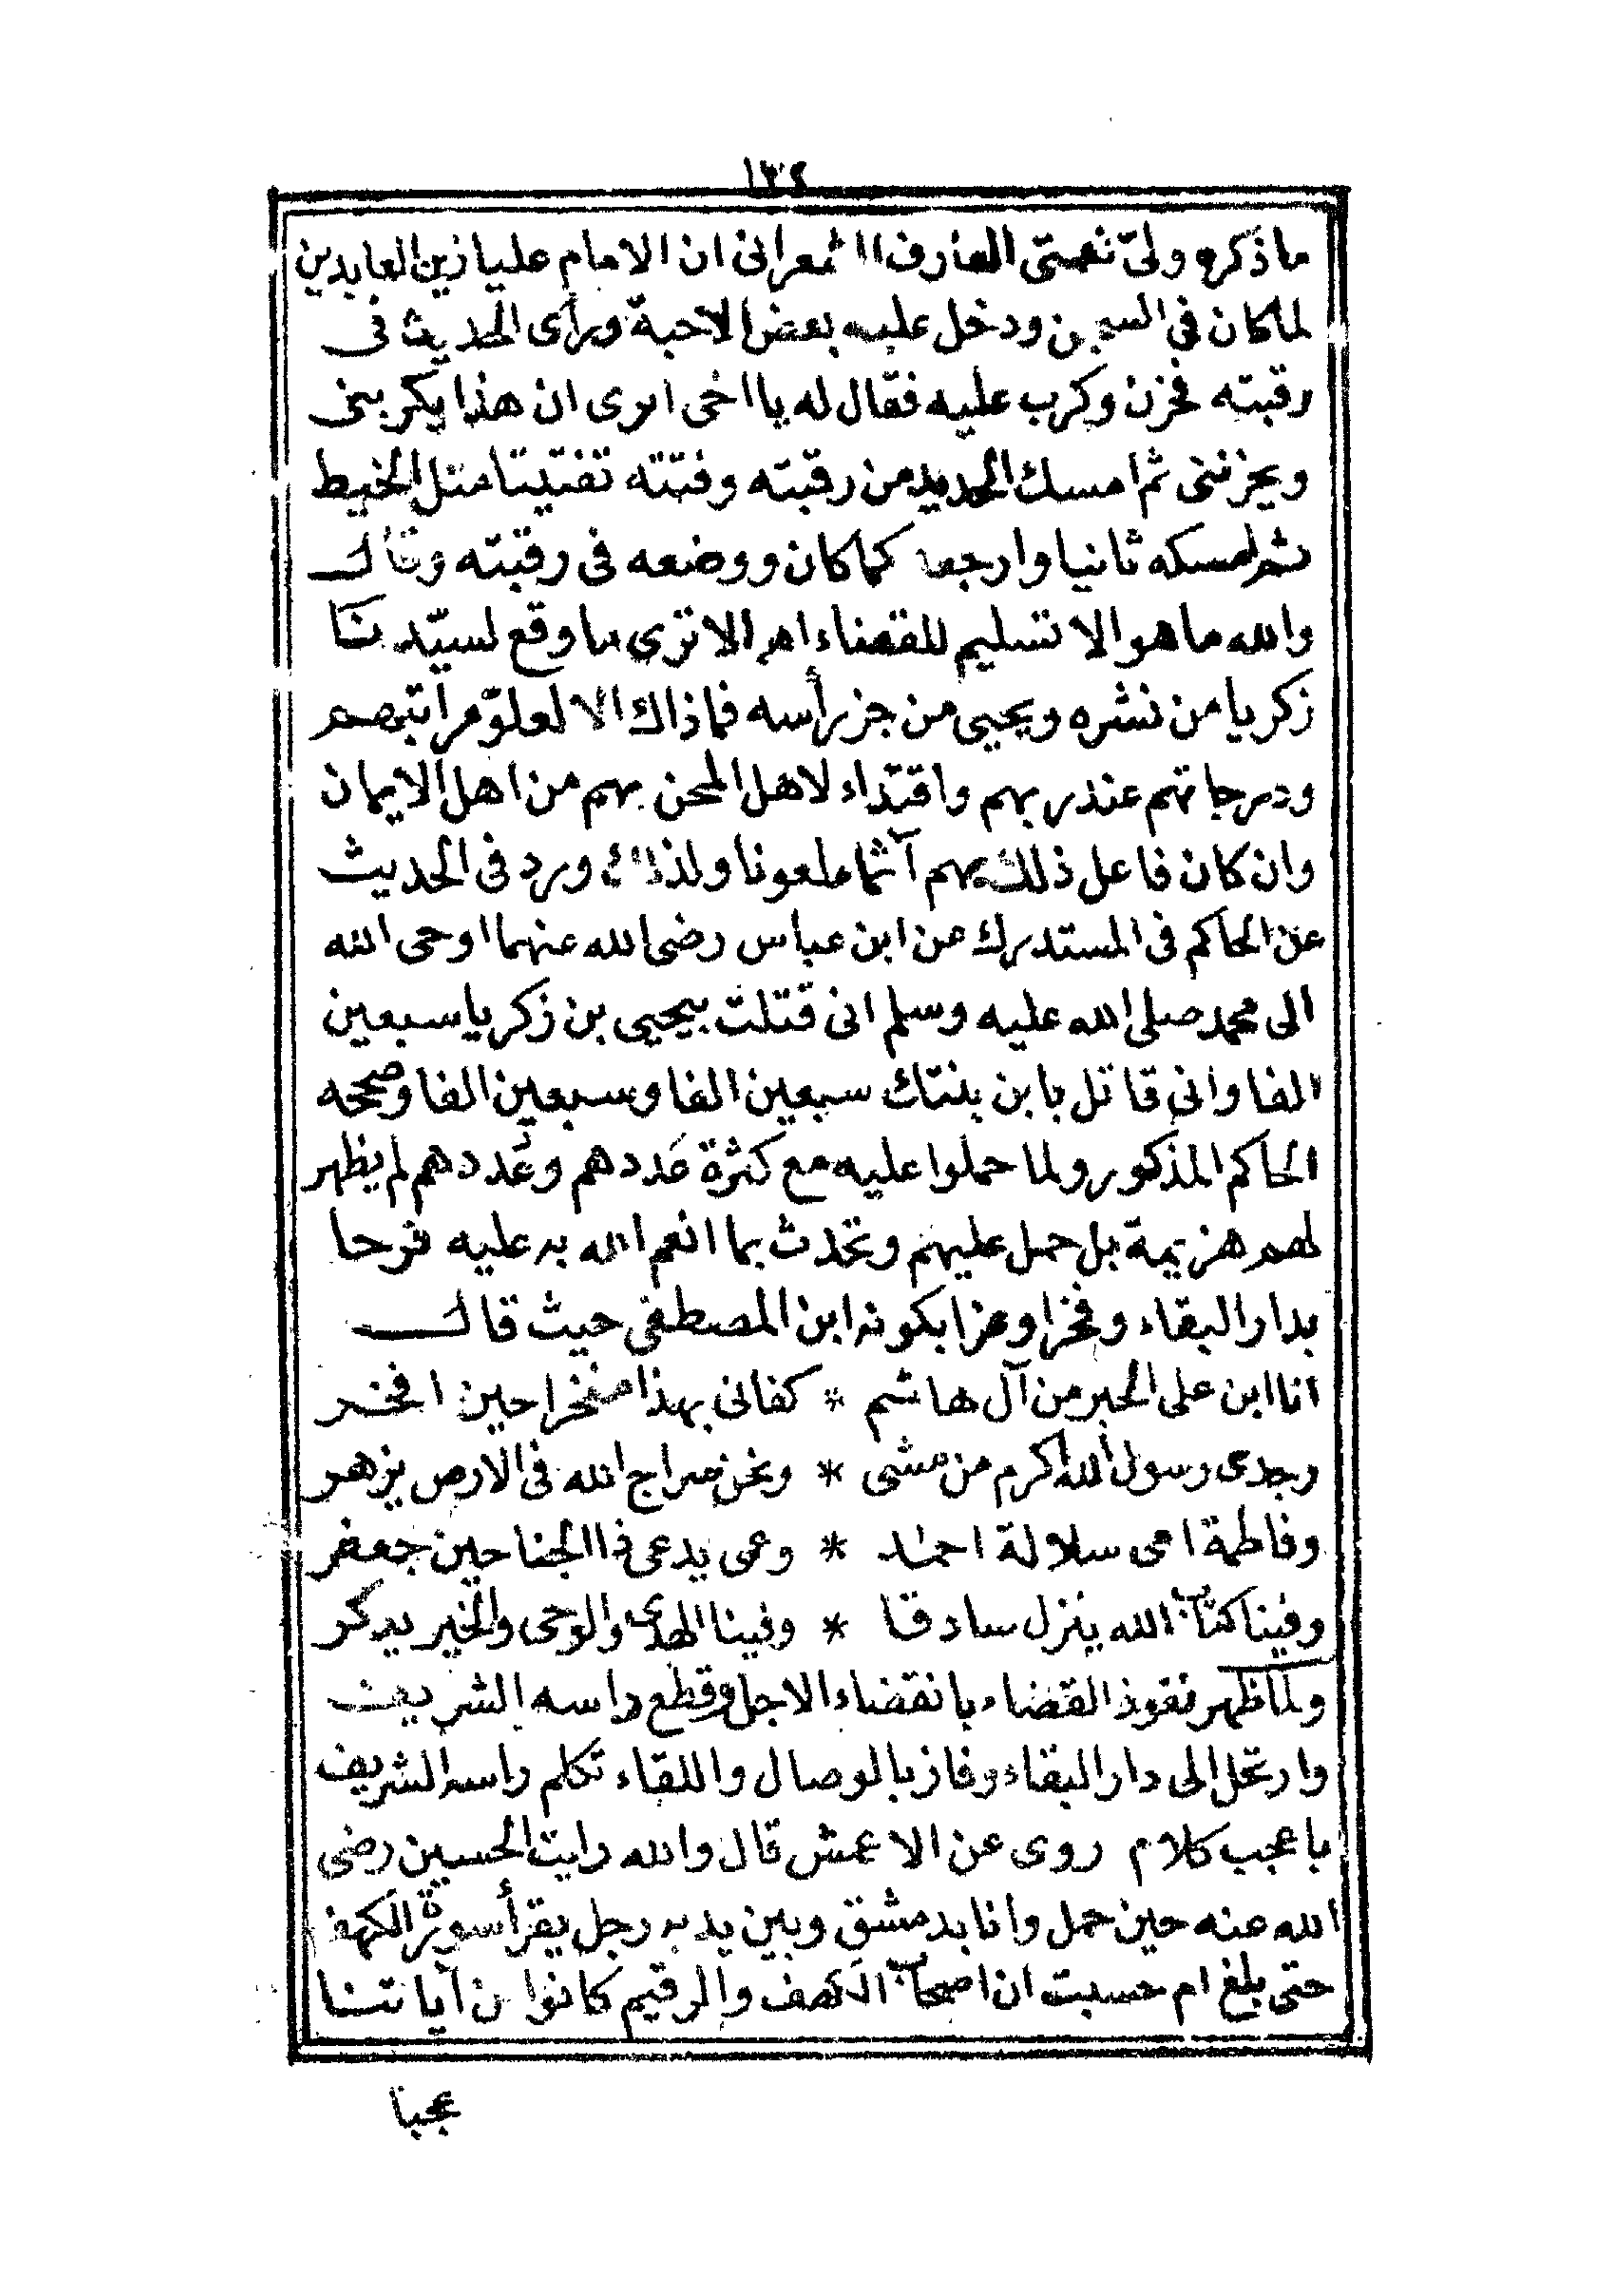 ١٣٤
ما ذكره ولىّ نعمتى العارف الشعرانى ان الامام عليا زين العابدين
لما كان فى السجن ودخل عليه بعض الاحبة ورأى الحديد فى
رقبته فحزن وكرب عليه فقال له يا اخى اترى ان هذا يكربنى
ويحزننى ثم امسك الحديد من رقبته وفتته تفتيتا مثل الخيط
ثم امسكه ثانيا وارجعه كما كان ووضعه فى رقبته وقال
والله ما هو الا تسليم للقضاء اهـ الا ترى ما وقع لسيّدنا
زكريا من نشره ويحيى من جز رأسه فما ذاك الا لعلوّ مراتبهم
ودرجاتهم عند ربهم واقتداء لاهل المحن بهم من اهل الايمان
وان كان فاعل ذلك بهم آثما ملعونا ولذلك ورد فى الحديث
عن الحاكم فى المستدرك عن ابن عباس رضى الله عنهما اوحى الله
الى محمد صلى الله عليه وسلم انى قتلت بيحيى بن زكريا سبعين
الفا وانى قاتل بابن بنتك سبعين الفا وسبعين الفا وصححه
الحاكم المذكور ولما حملوا عليه مع كثرة عَددهم وعُددهم لم يظهر
لهم هزيمة بل حمل عليهم وتحدث بما انعم الله به عليه فرحا
بدار البقاء وفخرا وعزا بكونه ابن المصطفى حيث قال
انا ابن على الحبر من آل هاشم * كفانى بهذا مفخرا حين افخر
وجدى رسول الله اكرم من مشى * ونحن سراج الله فى الارض يزهر
وفاطمة امى سلالة احمد * وعمى يدعى ذا الجناحين جعفر
وفينا كتاب الله ينزل صادقا * وفينا الهدى والوحى والخير يذكر
ولما ظهر نفوذ القضاء بانقضاء الاجل وقطع راسه الشريف
وارتحل الى دار البقاء وفاز بالوصال واللقاء تكلم راسه الشريف
باعجب كلام روى عن الاعمش قال والله رايت الحسين رضى
الله عنه حين حمل وانا بدمشق وبين يديه رجل يقرأ سورة الكهف
حتى بلغ ام حسبت ان اصحاب الكهف والرقيم كانوا من آياتنا
عجبا